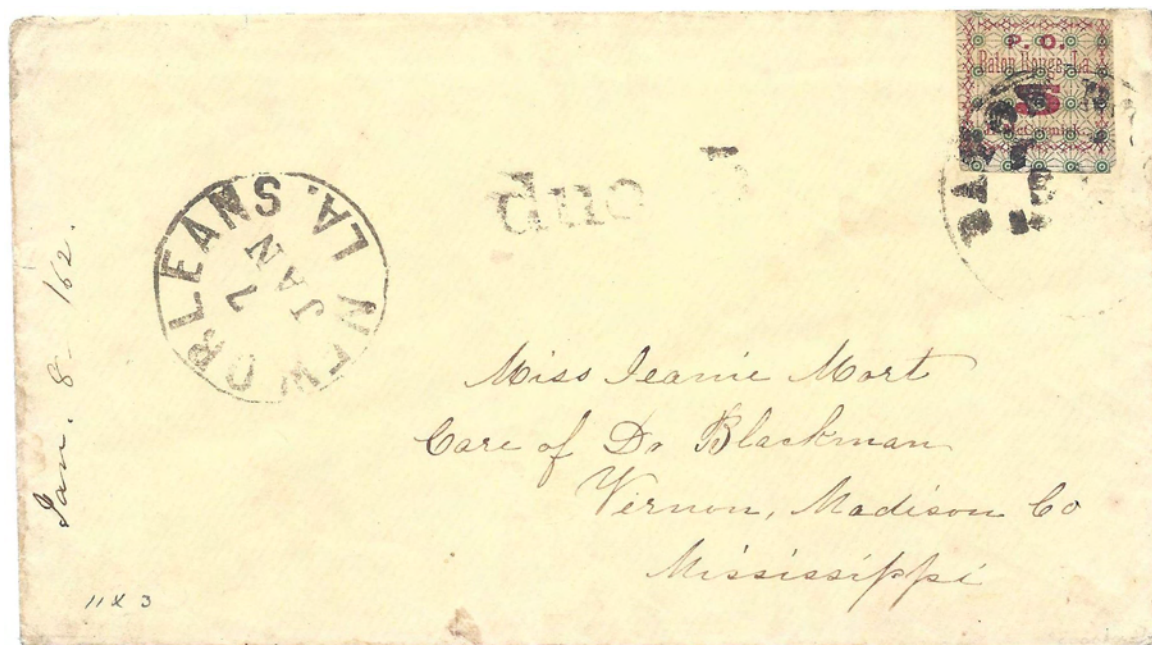 P. O.
Baton Rouge, La.
5
J. McCormick.
NEW ORLEANS. LA.
JAN
7
due 5
Miss Jeanie Mort
Care of Dr Blackman
Vernon, Madison Co
Mississippi
Jan. 8 - 162.
11 X 3